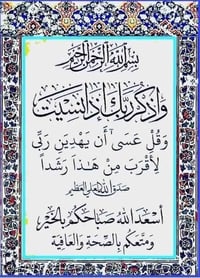 بسم الله الرحمن الرحيم
واذكر ربك إذا نسيت
وَقُلْ عَسَىٰ أَن يَهْدِيَنِ رَبِّي
لِأَقْرَبَ مِنْ هَٰذَا رَشَدًا
صدق الله العلي العظيم
أسعد الله صباحكم بالخير
ومتعكم بالصحة والعافية